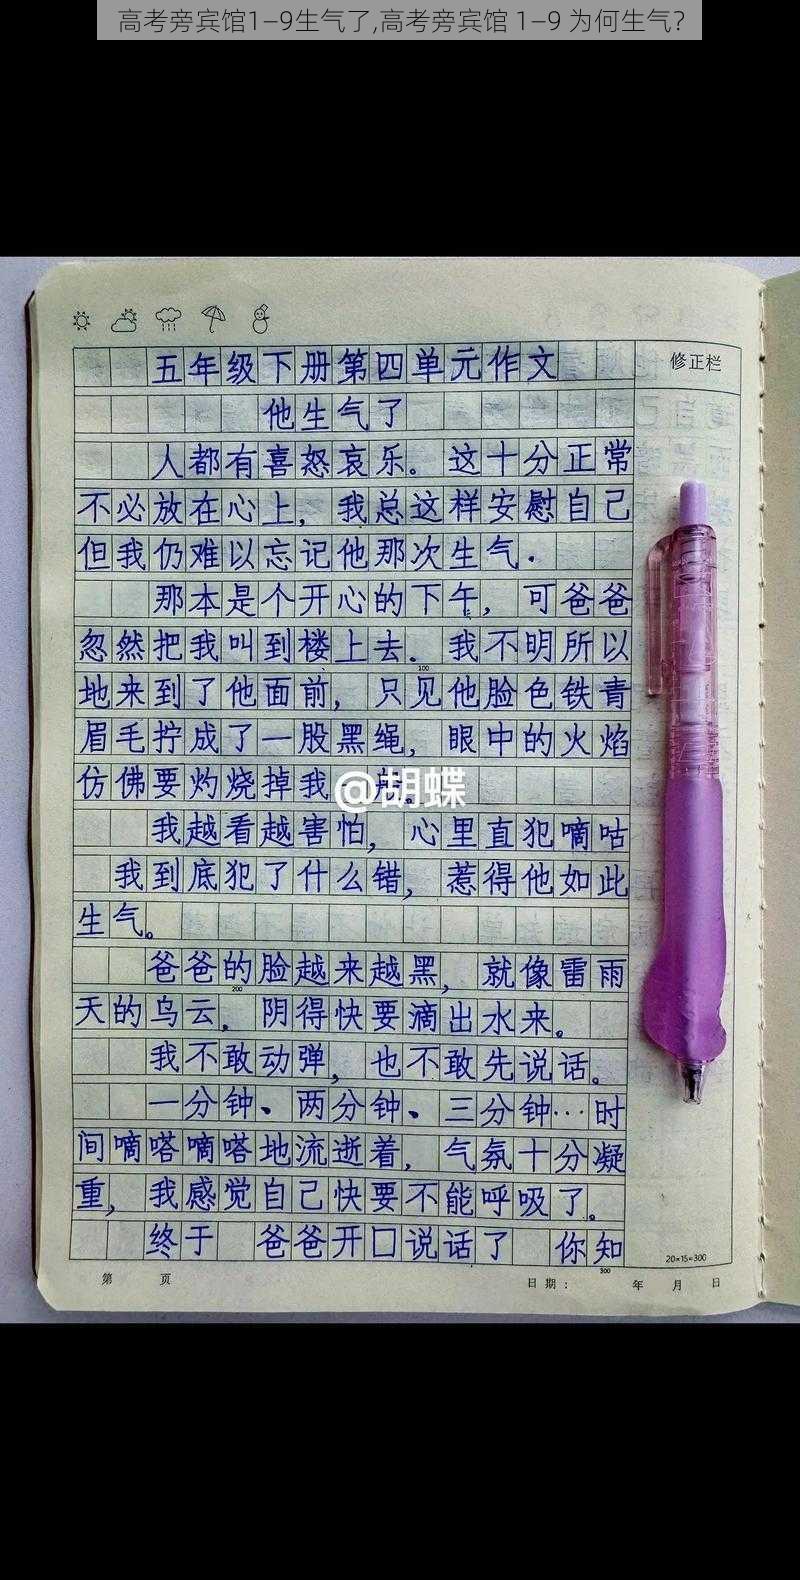 高考旁宾馆1—9生气了,高考旁宾馆 1—9 为何生气?
五年级下册第四单元作文
修正栏
他生气了
人都有喜怒哀乐。这十分正常
不必放在心上，我总这样安慰自己
但我仍难以忘记他那次生气.
那本是个开心的下午，可爸爸
忽然把我叫到楼上去．我不明所以
100
地来到了他面前，只见他脸色铁青
眉毛拧成了一股黑绳，眼中的火焰
仿佛要灼烧掉我
@胡蝶
我越看越害怕，心里直犯嘀咕
我到底犯了什么错，惹得他如此
生气。
爸爸的脸越来越黑，就像雷雨
200
天的乌云，阴得快要滴出水来。
我不敢动弹，也不敢先说话。
一分钟、两分钟、三分钟…时
间嘀嗒嘀嗒地流逝着，气氛十分凝
重，我感觉自己快要不能呼吸了。
终于 爸爸开口说话了 你知
20×15=300
300
第 页 日期： 年 月 日